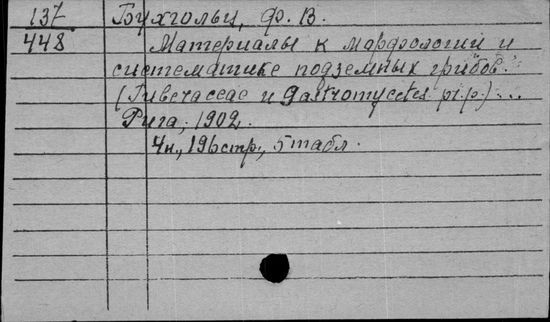 137 Бухгольц, Ф. В.
448 Материалы к морфологии и
систематике подземных грибов.
(Tuberaceae и Gastromycetes pr. p.)...
Рига, 1902.
4н., 196стр., 5 табл.